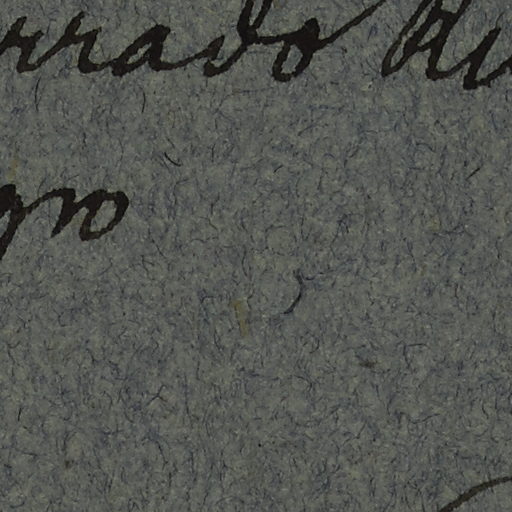 rrado
gro